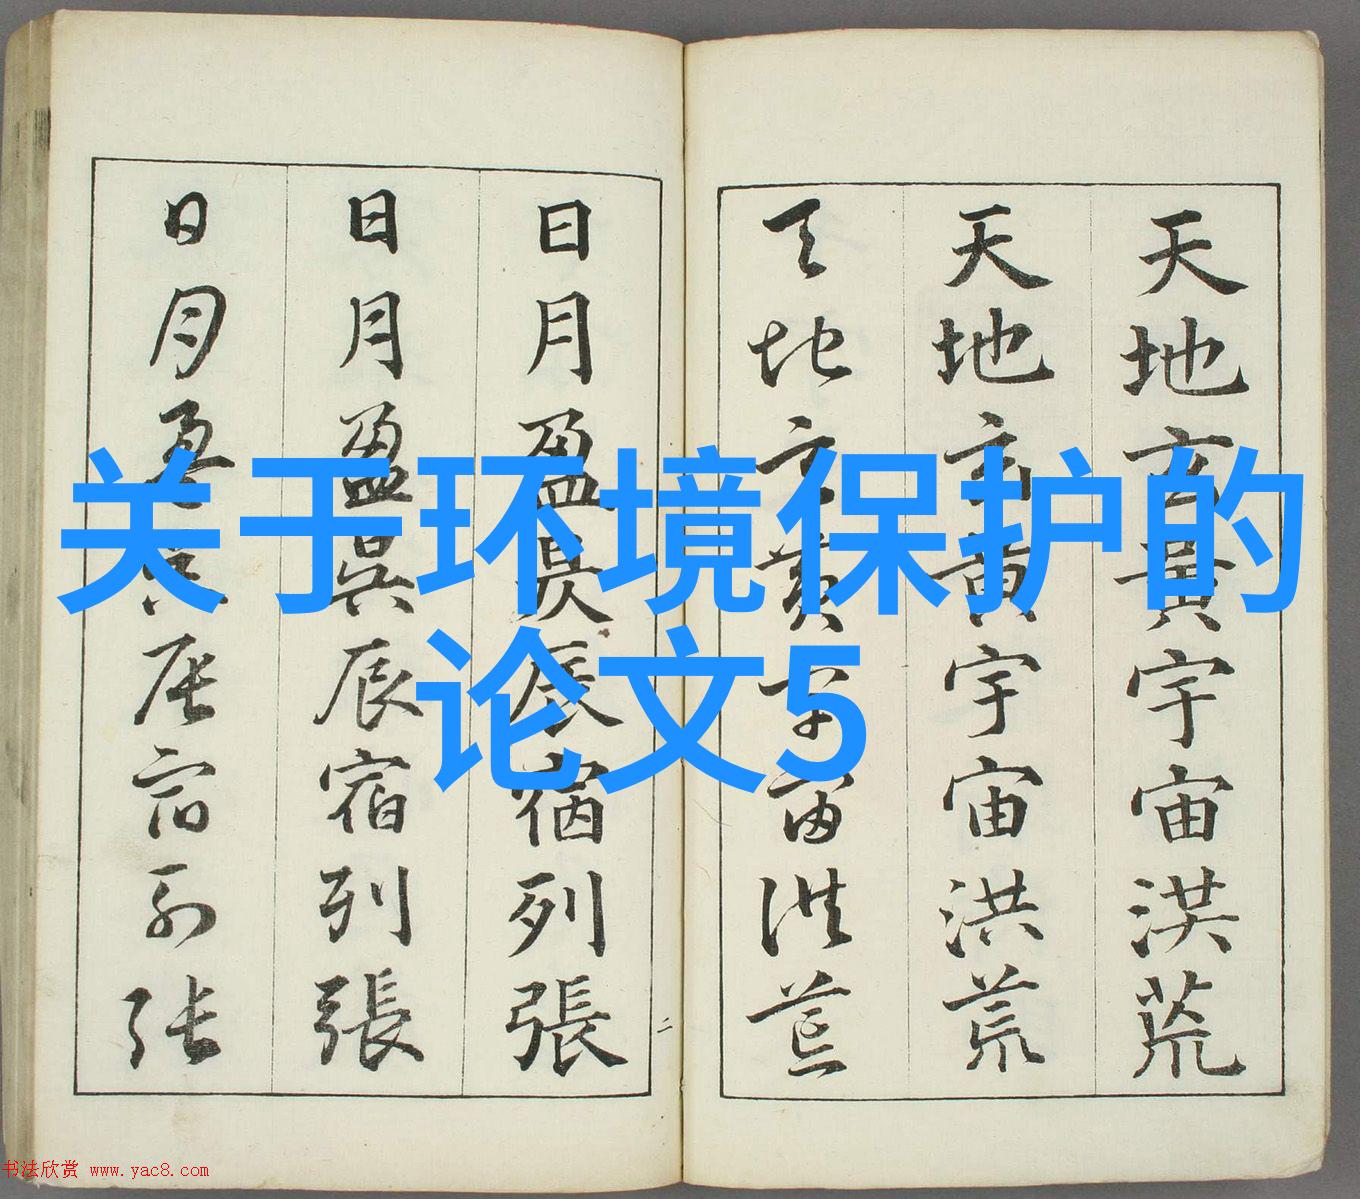 天地玄黃宇宙洪荒
天地玄黃宇宙洪荒
天地玄黃宇宙洪荒
日月盈昃辰宿列張
日月盈昃辰宿列張
日月盈昃辰宿列張
二
关于环境保护的
论文5
书法欣赏 www.yac8.com